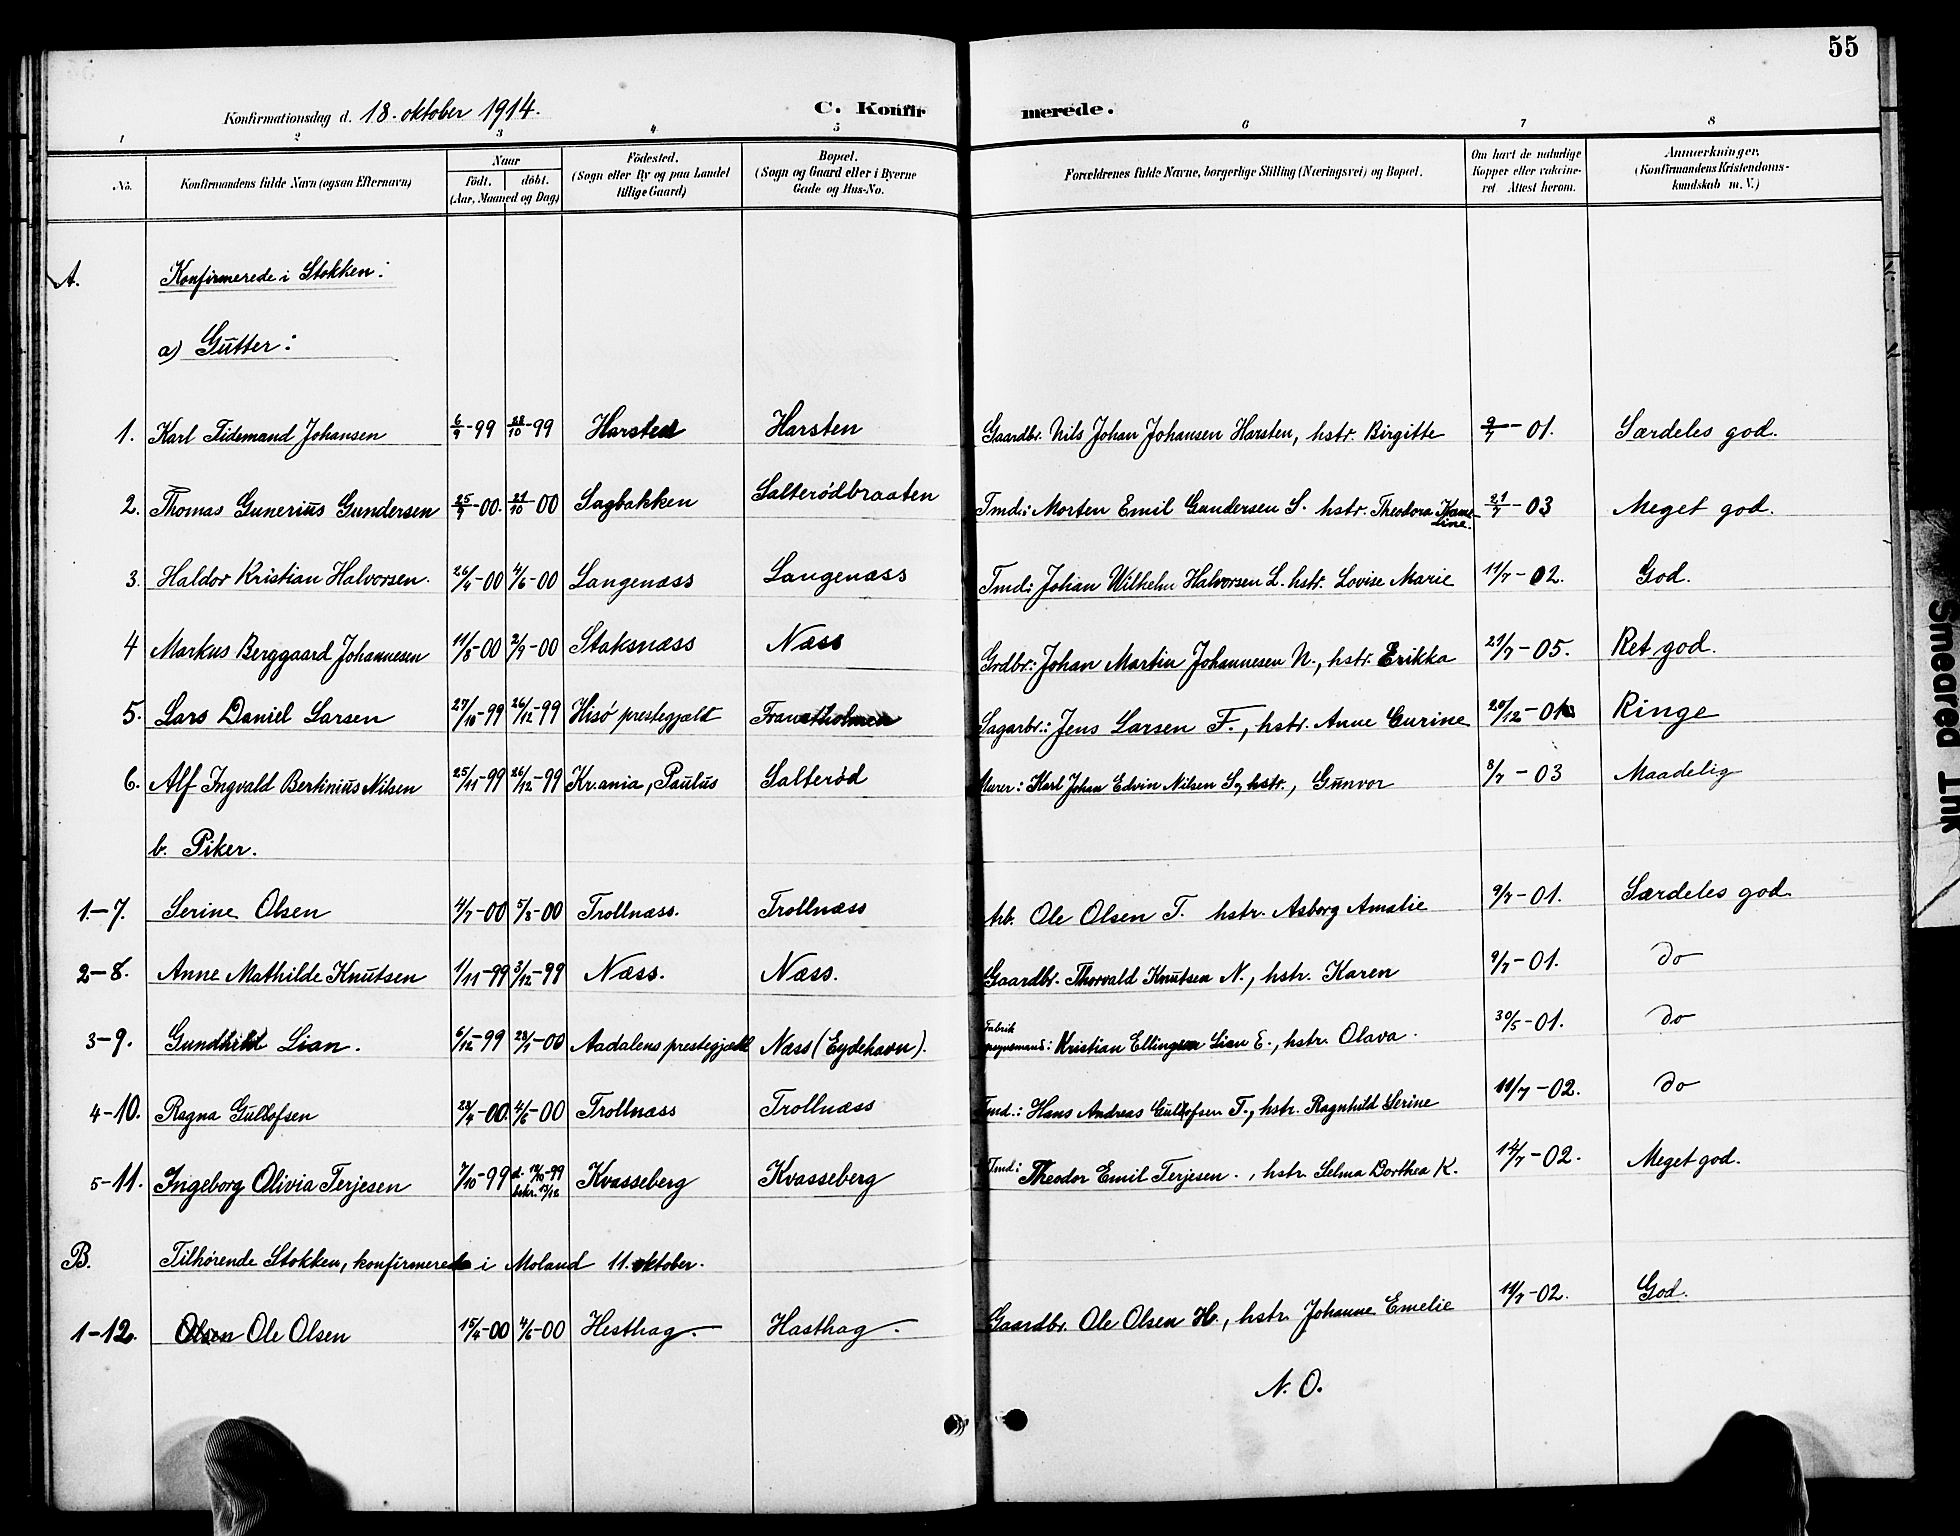 55
Konfirmationsdag d. 18. oktober 1914.
C. Konfirmerede.
1 2 3 4 5 6 7 8
No.
Konfirmandens fulde Navn (ogsaa Efternavn)
Naar
födt. döbt.
(Aar, Maaned og Dag)
Födested.
(Sogn eller By og paa Landet
tillige Gaard)
Bopæl.
(Sogn og Gaard eller i Byerne
Gade og Hus-No.
Forældrenes fulde Navne, borgerlige Stilling (Næringsvei) og Bopæl.
Om havt de naturlige
Kopper eller vakcine-
ret Attest herom.
Anmerkninger,
(Konfirmandens Kristendoms-
kundskab m. V.)
A. Konfirmerede i Stokken:
a) Gutter:
1. Karl Tidemand Johansen 6/9-99 28/10-99 Harsten Harsten Gaardbr. Nils Johan Johansen Harsten, hstr. Birgitte 9/7-01. Særdeles god.
2. Thomas Gunerius Gundersen 25/7-00. 21/10-00 Sagbakken Salterødbraaten Tmd: Morten Emil Gundersen S. hstr. Theodora 21/7-03 Meget god.
3. Haldor Kristian Halvorsen. 26/4-00 4/6-00 Langenæss Langenæss Tmd: Johan Wilhelm Halvorsen L. hstr. Lovise Marie 11/7-02. God.
4 Markus Berggaard Johannesen 11/8-00 2/9-00 Staksnæss Næss Grdbr: Johan Martin Johannesen N., hstr. Erikka 21/7-05. Ret god.
5. Lars Daniel Larsen 27/10-99 26/12-99 Hisø prestegjæld Sagarb.: Jens Larsen F., hstr. Anne Gurine 20/12-01 Ringe
6. Alf Ingvald Bertinius Nilsen 25/11-99 26/12-99 Kr.ania, Paulus Salterød Murer: Karl Johan Edvin Nilsen S., hstr., Gunvor 8/7-03 Maadelig
b. Piker.
1-7. Serine Olsen 4/7-00 5/8-00 Trollnæss. Trollnæss Arb. Ole Olsen T. hstr. Asborg Amalie 9/7-01. Særdeles god.
2-8. Anne Mathilde Knutsen 1/11-99 3/12-99 Næss. Næss. Gaardbr. Thorvald Knutsen N., hstr. Karen 9/7-01. do
3-9. Gundhild Lian. 6/12-99 28/1-00 Aadalens prestegjæld Næss (Eydehavn). Fabrik Kristian Ellingsen Lian E., hstr. Olava. 30/5-01. do
4-10. Ragna Gullofsen 28/4-00. 4/6-00 Trollnæss Trollnæss Tmd.: Hans Andreas Gullofsen T., hstr. Ragnhild Serine 11/7-02. do
5-11. Ingeborg Olivia Terjesen 7/10-99 Kvasseberg Kvasseberg Tmd: Theodor Emil Terjesen., hstr. Selma Dorthea K. 14/7-02. Meget god.
B. Tilhørende Stokken, konfirmerede i Moland 11. oktober.
1-12. Olsen Ole Olsen 15/4-00 4/6-00 Hesthag. Hasthag. Gaardbr. Ole Olsen H., hstr. Johanne Emelie 11/7-02. God.
N. O.
Smeared Ink